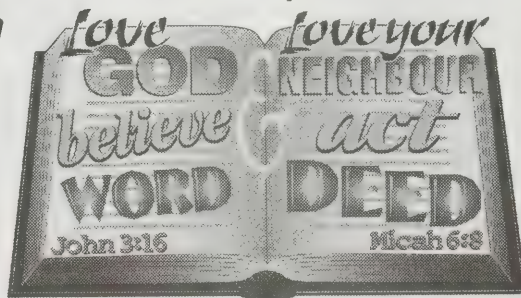 Love
GOD
believe
WORD
John 3:16
&
Love your
NEIGHBOUR
act
DEED
Micah 6:8